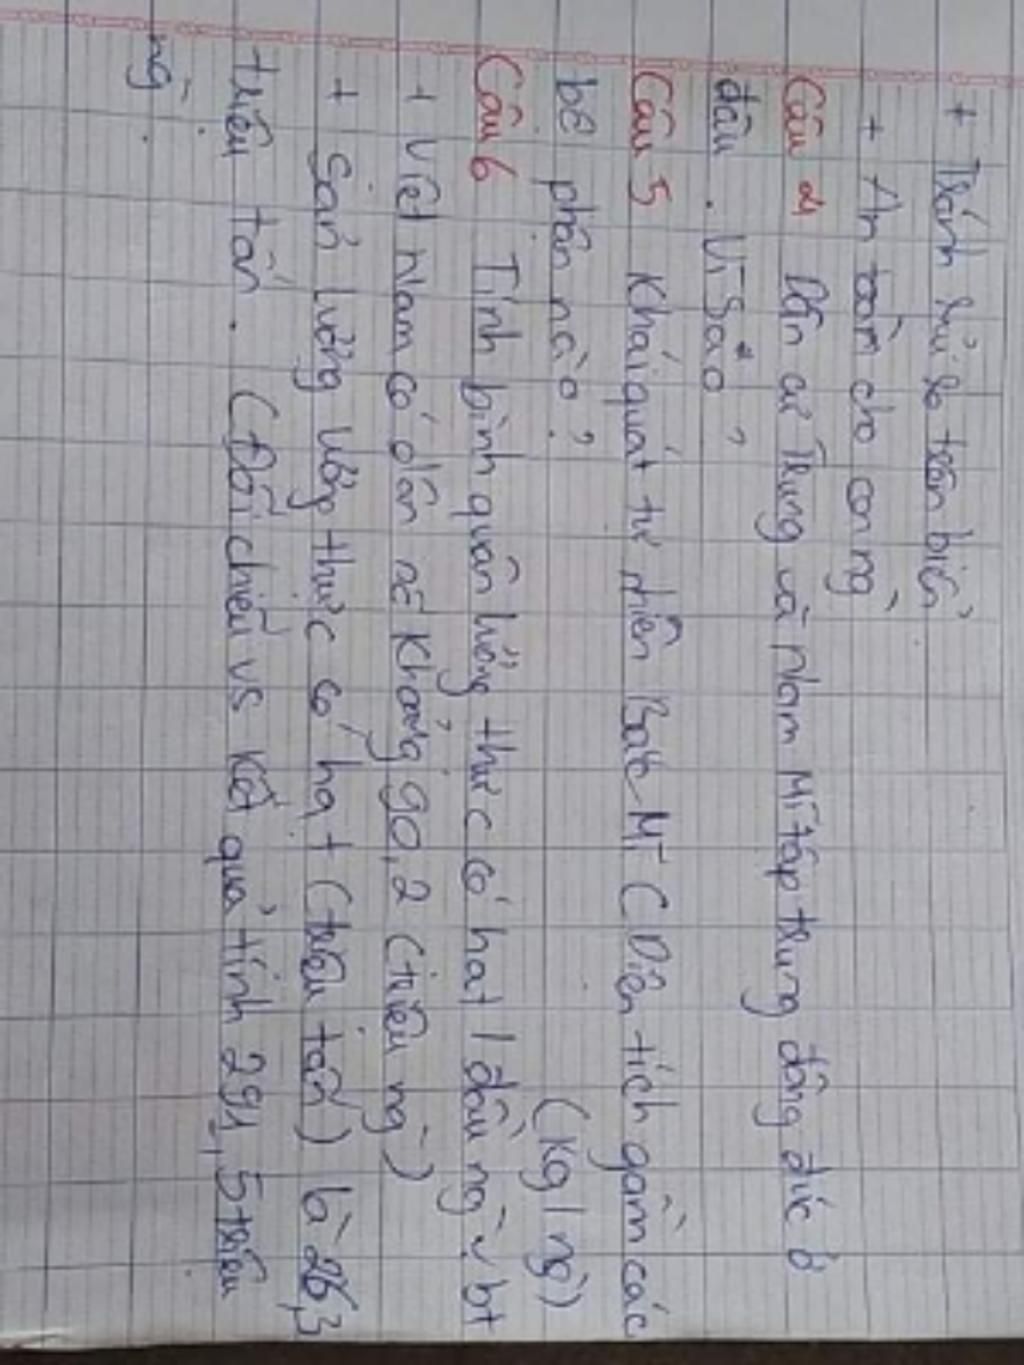 + Tránh sự số trên biển
+ An toàn cho con ng`
Câu 4 Dân cư Trung và Nam Mĩ tập trung đông đúc ở
đâu. Vì Sao ?
Câu 5 Khái quát tự nhiên Bắc Mĩ (Diện tích gồm các
bộ phận nào?
(Kg/ng`)
Câu 6 Tính bình quân lương thực có hạt / đầu ng` bt
+ Việt Nam có dân số khoảng 90,2 (triệu ng`)
+ Sản lượng lương thực có hạt (triệu tấn) là 26,3
triệu tấn. (Đối chiếu vs kết quả tính 291,5 triệu
ng`.